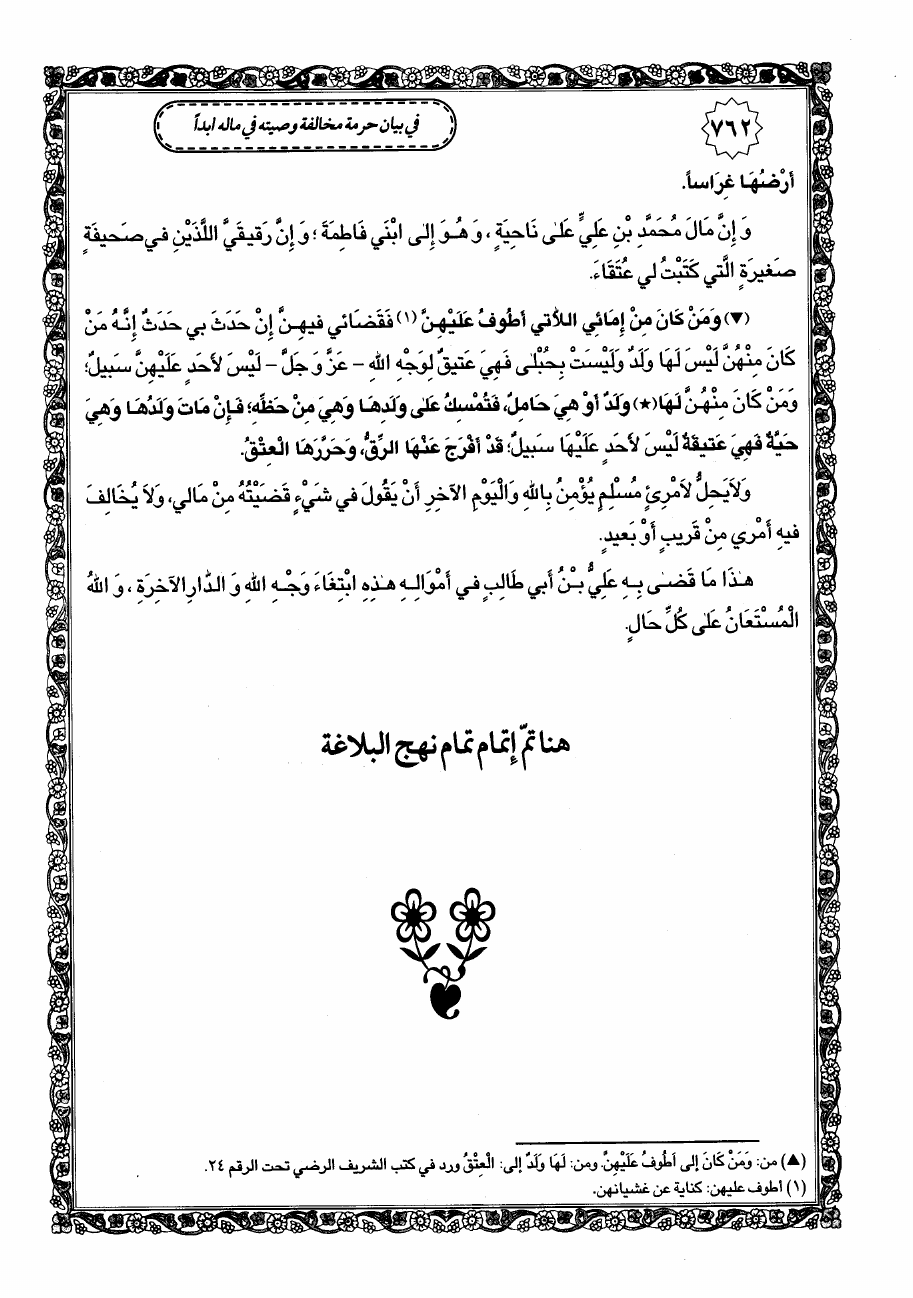 ٧٦٢
في بيان حرمة مخالفة وصيته في ماله ابداً
أَرْضُهَا غِرَاساً.
وَ إِنَّ مَالَ مُحَمَّدِ بْنِ عَلِيٍّ عَلى نَاحِيَةٍ ، وَ هُوَ إِلَى ابْنَي فَاطِمَةَ ؛ وَ إِنَّ رَقيقَيَّ اللَّذَيْنِ في صَحيفَةٍ
صَغيرَةٍ الَّتي كَتَبْتُ لي عُتَقَاءَ.
(▼) وَ مَنْ كَانَ مِنْ إِمَائِي اللاَّتي أَطُوفُ عَلَيْهِنَّ (١) فَقَضَائي فيهِنَّ إِنْ حَدَثَ بي حَدَثٌ إِنَّهُ مَنْ
كَانَ مِنْهُنَّ لَيْسَ لَهَا وَلَدٌ وَلَيْسَتْ بِحُبْلى فَهِيَ عَتيقٌ لِوَجْهِ اللهِ – عَزَّ وَ جَلَّ – لَيْسَ لأَحَدٍ عَلَيْهِنَّ سَبيلٌ؛
وَمَنْ كَانَ مِنْهُنَّ لَهَا (★) وَلَدٌ أَوْ هِيَ حَامِلٌ، فَتُمْسَكُ عَلى وَلَدِهَا وَهِيَ مِنْ حَظِّهِ؛ فَإِنْ مَاتَ وَلَدُهَا وَهِيَ
حَيَّةٌ فَهِيَ عَتيقَةٌ لَيْسَ لأَحَدٍ عَلَيْهَا سَبيلٌ؛ قَدْ أَفْرَجَ عَنْهَا الرِّقُّ، وَحَرَّرَهَا الْعِتْقُ.
وَلاَ يَحِلُّ لاِمْرِئٍ مُسْلِمٍ يُؤْمِنُ بِاللهِ وَالْيَوْمِ الآخِرِ أَنْ يَقُولَ في شَيْءٍ قَضَيْتُهُ مِنْ مَالي، وَلاَ يُخَالِفَ
فيهِ أَمْري مِنْ قَريبٍ أَوْ بَعيدٍ.
هذَا مَا قَضى بِهِ عَلِيُّ بْنُ أَبي طَالِبٍ في أَمْوَالِهِ هذِهِ ابْتِغَاءَ وَجْهِ اللهِ وَ الدَّارِ الآخِرَةِ ، وَ اللهُ
الْمُسْتَعَانُ عَلى كُلِّ حَالٍ.
هنا تمّ إتمام تمام نهج البلاغة
(▲) من: وَمَنْ كَانَ إلى أَطُوفُ عَلَيْهِنَّ. ومن: لَهَا وَلَدٌ إلى: الْعِتْقُ ورد في كتب الشريف الرضي تحت الرقم ٢٤.
(١) أطوف عليهن: كناية عن غشيانهن.